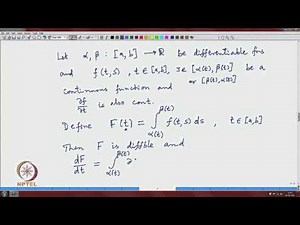 Let α, β : [a, b] → ℝ be differentiable fns
and f(t, s), t ∈ [a, b], s ∈ [α(t), β(t)] be a
or [β(t), α(t)]
continuous function and
∂f/∂t is also cont.
Define F(t) = ∫_{α(t)}^{β(t)} f(t, s) ds, t ∈ [a, b]
Then F is diffble and
dF/dt = ∫_{α(t)}^{β(t)} ∂
NPTEL